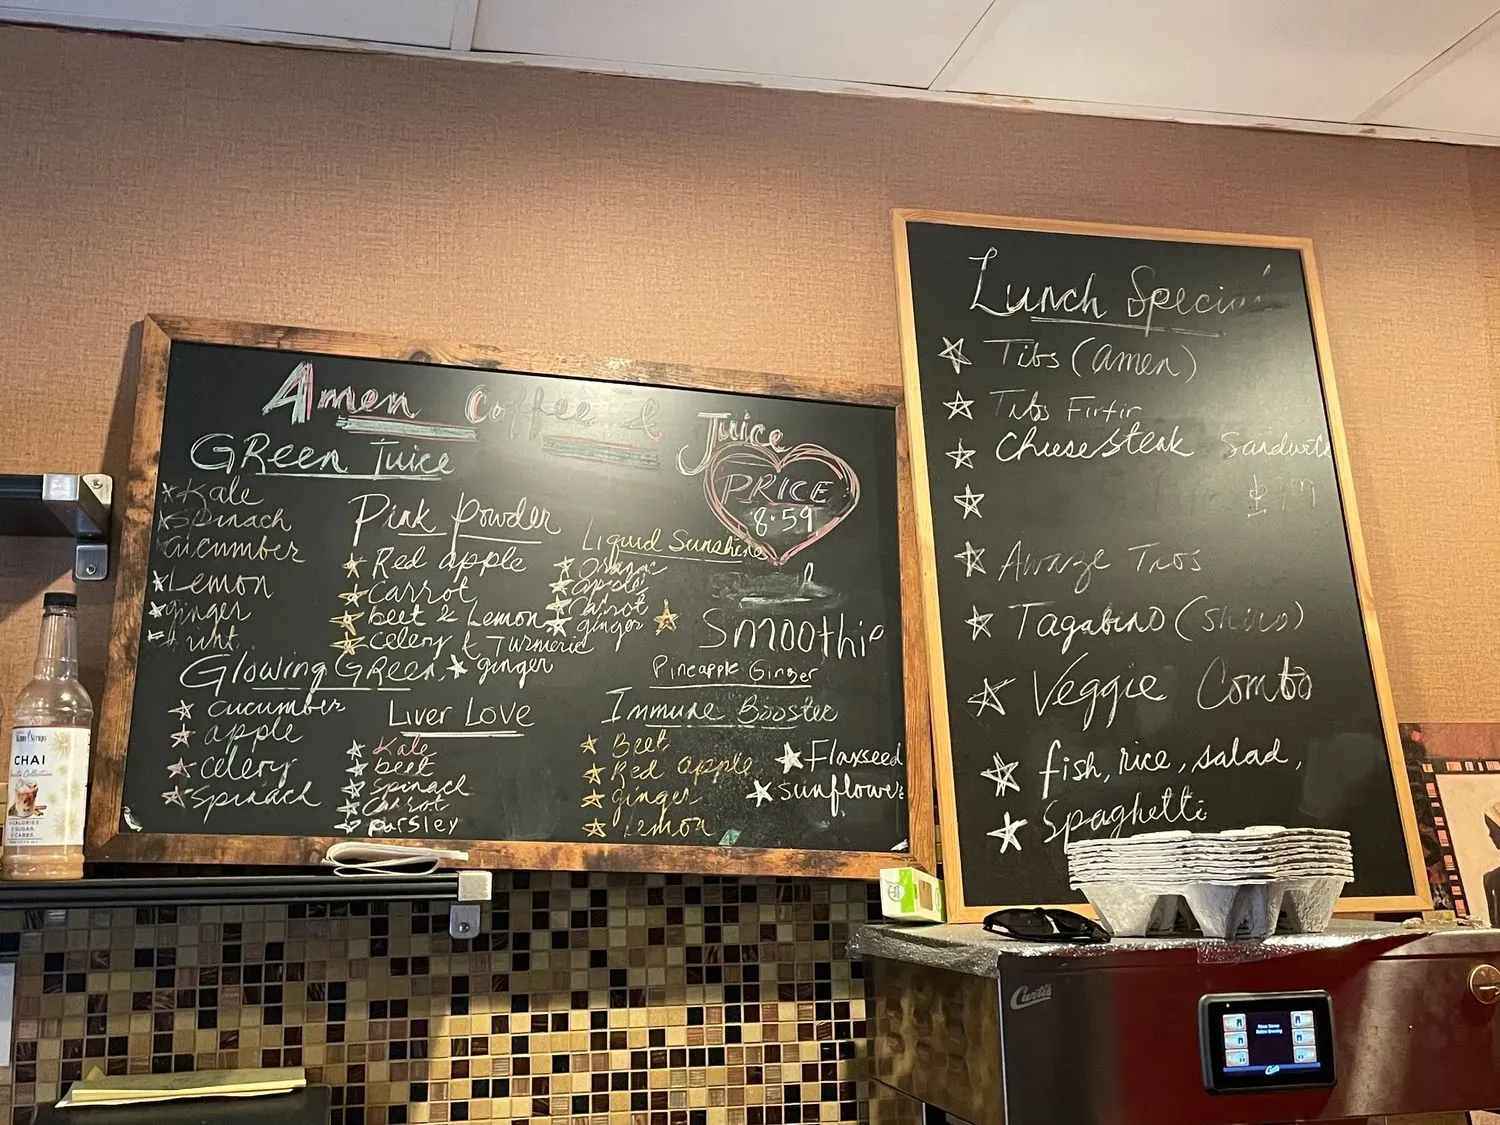 Amen Coffee & Juice
GReen Juice
Kale
Spinach
Cucumber
Lemon
ginger
Pink Powder
Red apple
Carrot
beet & Lemon
Celery & Turmeric
ginger
Liquid Sunshine
Orange
apple
Carrot
ginger
PRICE
8.59
Smoothie
Pineapple Ginger
Glowing GReen
cucumber
apple
celery
Spinach
Liver Love
Kale
beet
Spinach
Carrot
parsley
Immune Booster
Beet
Red apple
ginger
Lemon
Flaxseed
sunflower
Lunch Special
Tibs (amen)
Tibs Firfir
Cheesesteak Sandwich
Awaze Tibs
Tagabino (shiro)
Veggie Combo
fish, rice, salad,
Spaghetti
CHAI
Curtis